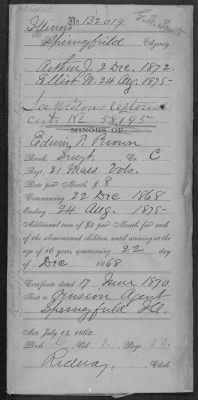 Illinois
No. 132019
Springfield Agency
Arthur J. 2 Dec. 1872.
Elliot W. 24 Aug. 1875-
58,195
MINORS OF
Edwin T. Brown
Rank, Co. C
Regt. 21 Mass Vols.
Rate per Month, $ 8
Commencing 22 Dec 1868
Ending 24 Aug. 1875-
Additional sum of $2 per Month for each
of the above-named children, until arriving at the
age of 16 years, commencing 22 day
of Dec 1868
Certificate dated 17 June 1870
Sent to Pension Agent
Springfield Ill.
Act July 14, 1862.
Book Vol. 2 Page
Ridway, Clerk.